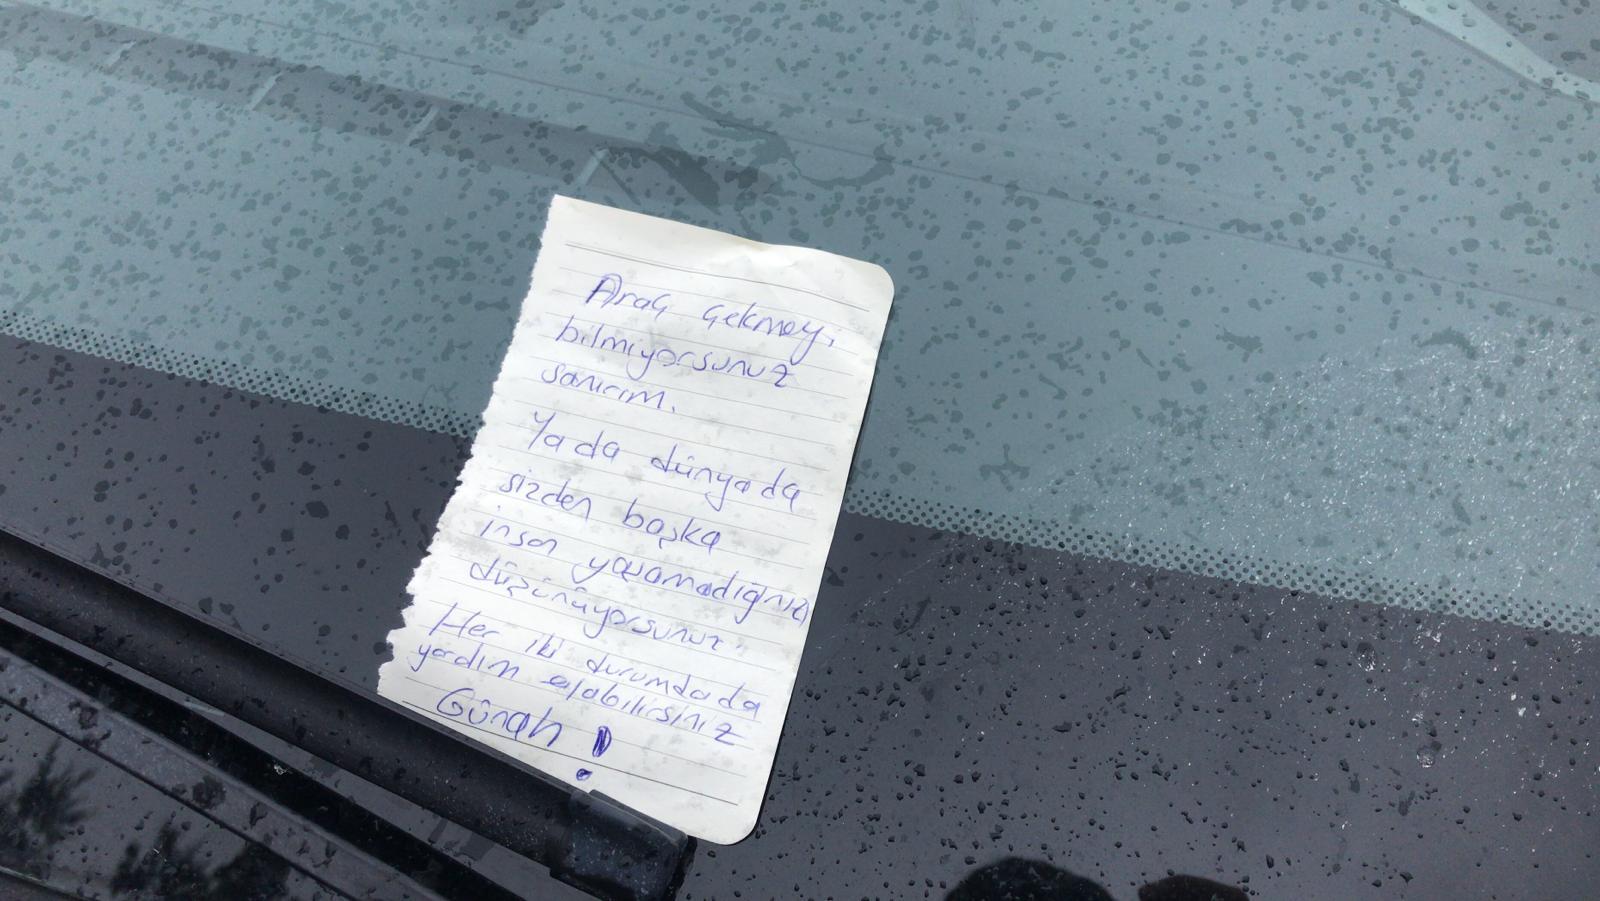 Araç çekmeyi
bilmiyorsunuz
sanırım.
Ya da dünyada
sizden başka
insan yaşamadığını
düşünüyorsunuz.
Her iki durumda da
yardım alabilirsiniz
Günah !